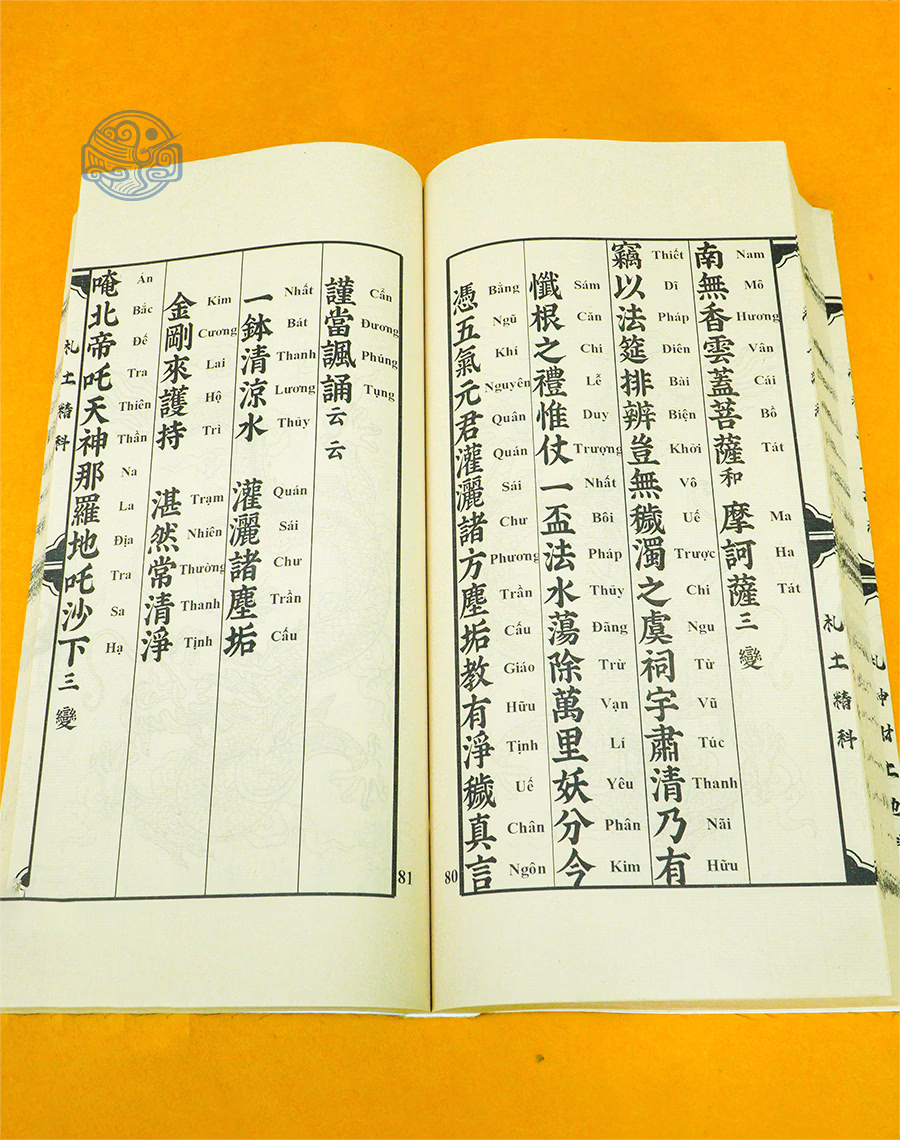 南無香雲蓋菩薩和 摩訶薩三變
Nam Mô Hương Vân Cái Bồ Tát Ma Ha Tát
竊以法筵排辨豈無穢濁之虞祠宇肅清乃有
Thiết Dĩ Pháp Diên Bài Biện Khởi Vô Uế Trược Chi Ngu Từ Vũ Túc Thanh Nãi Hữu
懺根之禮惟仗一盃法水蕩除萬里妖分今
Sám Căn Chi Lễ Duy Trượng Nhất Bôi Pháp Thủy Đãng Trừ Vạn Lí Yêu Phân Kim
憑五氣元君灌灑諸方塵垢教有淨穢真言
Bằng Ngũ Khí Nguyên Quân Quán Sái Chư Phương Trần Cấu Giáo Hữu Tịnh Uế Chân Ngôn
礼土精科
80
謹當諷誦云云
Cẩn Đương Phúng Tụng
一鉢清涼水 灌灑諸塵垢
Nhất Bát Thanh Lương Thủy Quán Sái Chư Trần Cấu
金剛來護持 湛然常清淨
Kim Cương Lai Hộ Trì Trạm Nhiên Thường Thanh Tịnh
唵北帝吒天神那羅地吒沙下三變
Án Bắc Đế Tra Thiên Thần Na La Địa Tra Sa Hạ
礼土精科
81